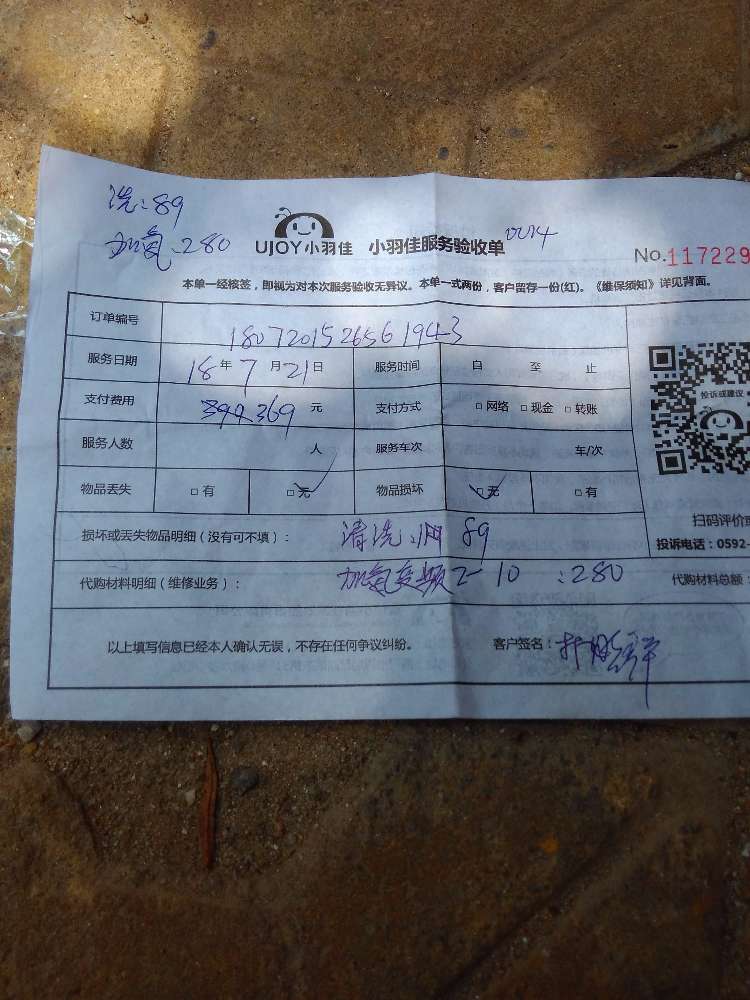 洗:89
加氨:280
UJOY小羽佳 小羽佳服务验收单
No.117229
本单一经核签，即视为对本次服务验收无异议。本单一式两份，客户留存一份(红)。《维保须知》详见背面。
订单编号 180720152656 1943
服务日期 18年7月21日 服务时间 自 至 止
支付费用 369元 支付方式 □网络 □现金 □转账
投诉或建议
服务人数 人 服务车次 车/次
物品丢失 □有 □无 物品损坏 □无 □有
扫码评价
损坏或丢失物品明细（没有可不填）： 清洗: 89
投诉电话：0592-
代购材料明细（维修业务）： 加氨变频2-10 :280 代购材料总额：
以上填写信息已经本人确认无误，不存在任何争议纠纷。 客户签名：